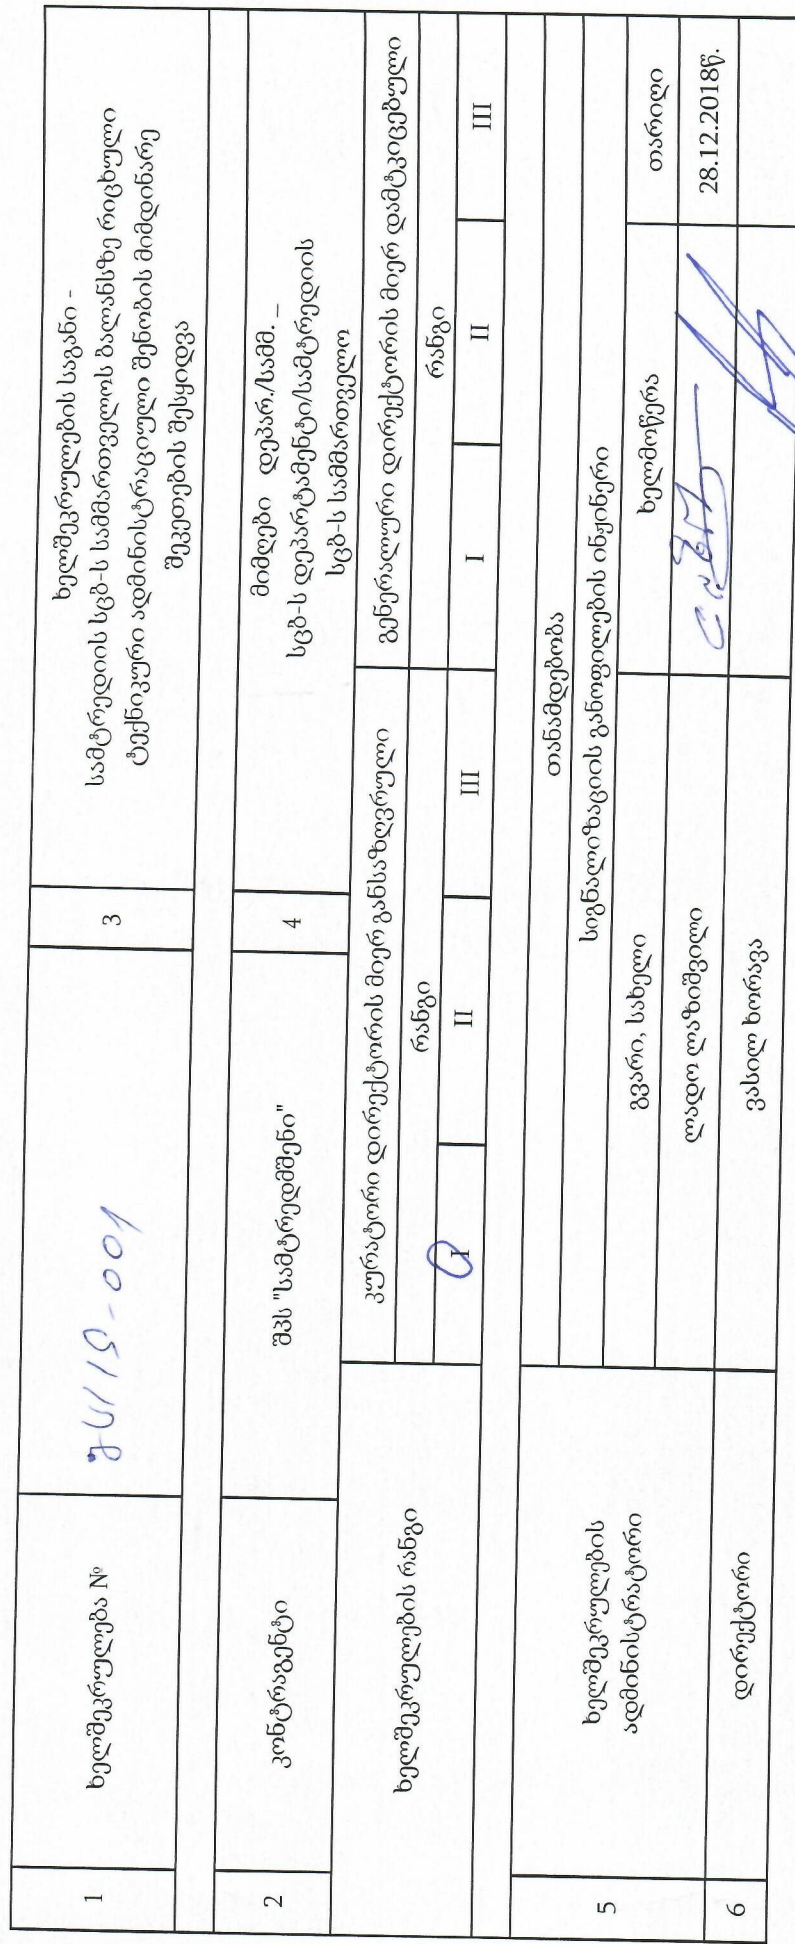 1
ხელშეკრულება №
3
ხელშეკრულების საგანი -
სამტრედიის სცბ-ს სამმართველოს ბალანსზე რიცხული
ტექნიკური ადმინისტრაციული შენობის მიმდინარე
შეკეთების შესყიდვა
2
კონტრაგენტი
შპს "სამტრედმშენი"
4
მიმღები დეპარ./სამმ. _
სცბ-ს დეპარტამენტი/სამტრედიის
სცბ-ს სამმართველო
ხელშეკრულების რანგი
კურატორი დირექტორის მიერ განსაზღვრული
გენერალური დირექტორის მიერ დამტკიცებული
რანგი
რანგი
I
II
III
I
II
III
5
ხელშეკრულების
ადმინისტრატორი
თანამდებობა
სიგნალიზაციის განოფილების ინჟინერი
გვარი, სახელი
ხელმოწერა
თარიღი
ლადო ლაზიშვილი
28.12.2018წ.
6
დირექტორი
ვასილ ხორავა